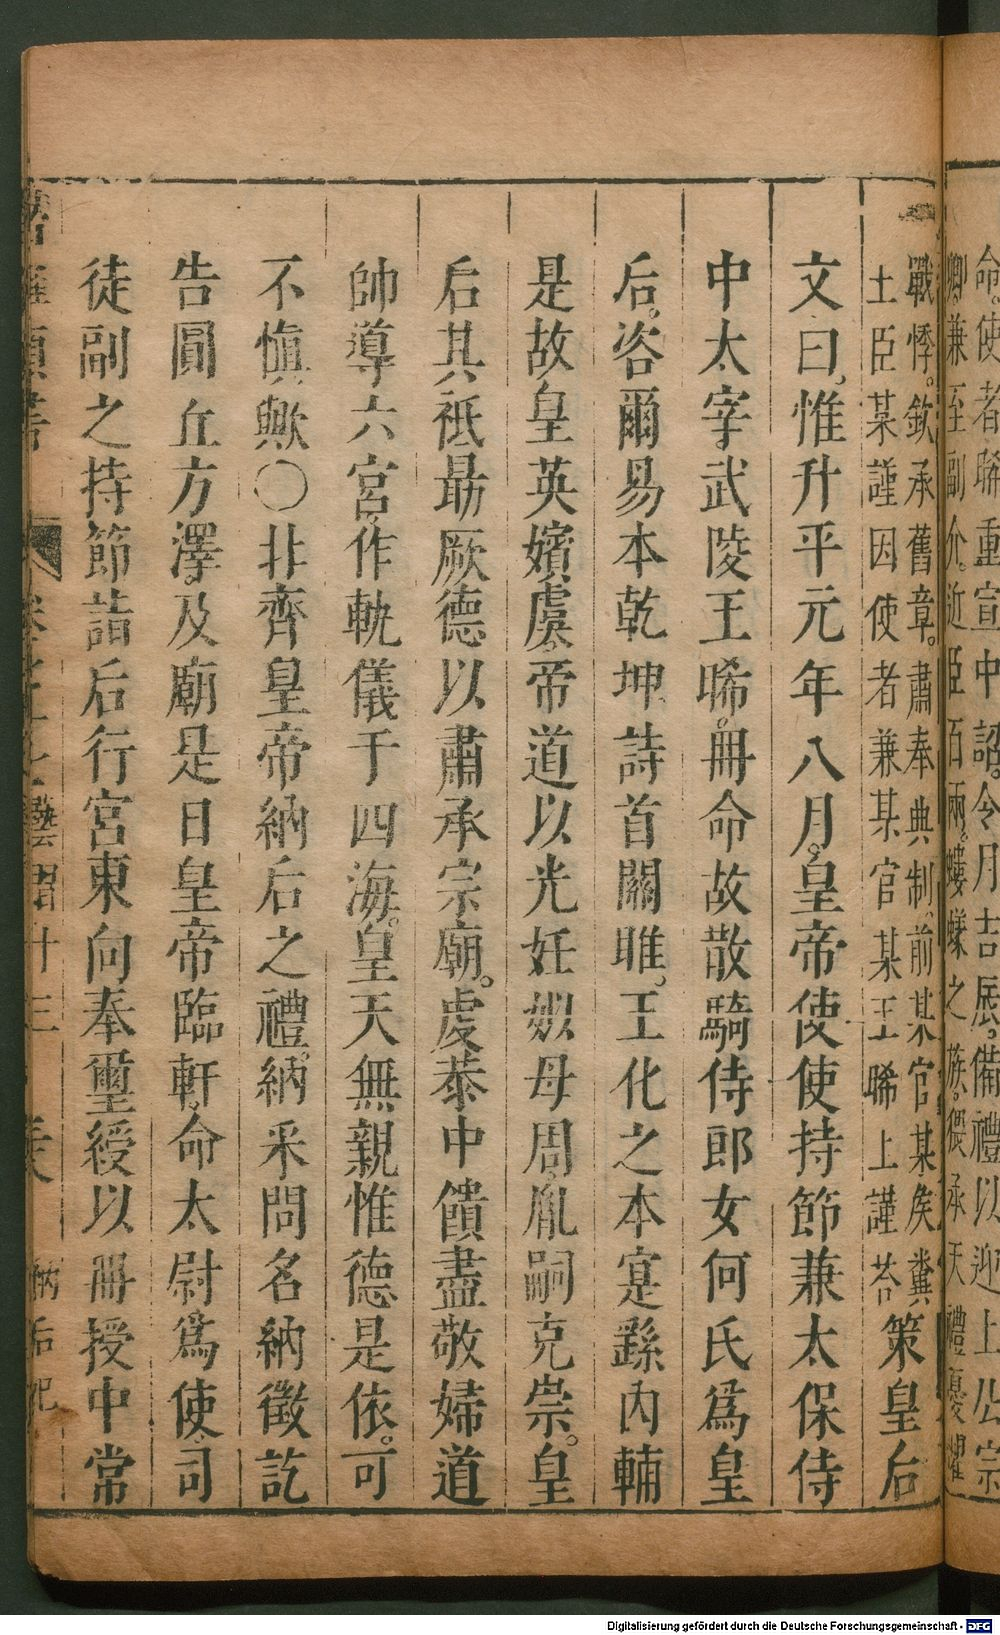 命。使者聯重宣中詔。令月吉辰。備禮以迎上公宗
卿兼至副介。近臣百兩。螻蟻之族。猥承天禮憂懼
戰悸。欽承舊章。肅奉典制。前某官某侯糞
土臣某謹因使者兼某官某王晞上謹荅
策皇后
文曰。惟升平元年八月。皇帝使使持節兼太保侍
中太宰武陵王晞。冊命故散騎侍郎女何氏爲皇
后。咨爾易本乾坤詩首關雎。王化之本寔繇內輔
是故皇英嬪虞。帝道以光妊姒母周。胤嗣克崇。皇
后其祗勗厥德以肅承宗廟。虔恭中饋盡敬婦道
帥導六宮。作軌儀于四海。皇天無親惟德是依。可
不慎歟〇北齊皇帝納后之禮。納采問名納徵訖
告圓丘方澤。及廟是日皇帝臨軒。命太尉爲使。司
徒副之持節詣后行宮東向奉璽綬以冊授中常
納后
Digitalisierung gefördert durch die Deutsche Forschungsgemeinschaft - DFG